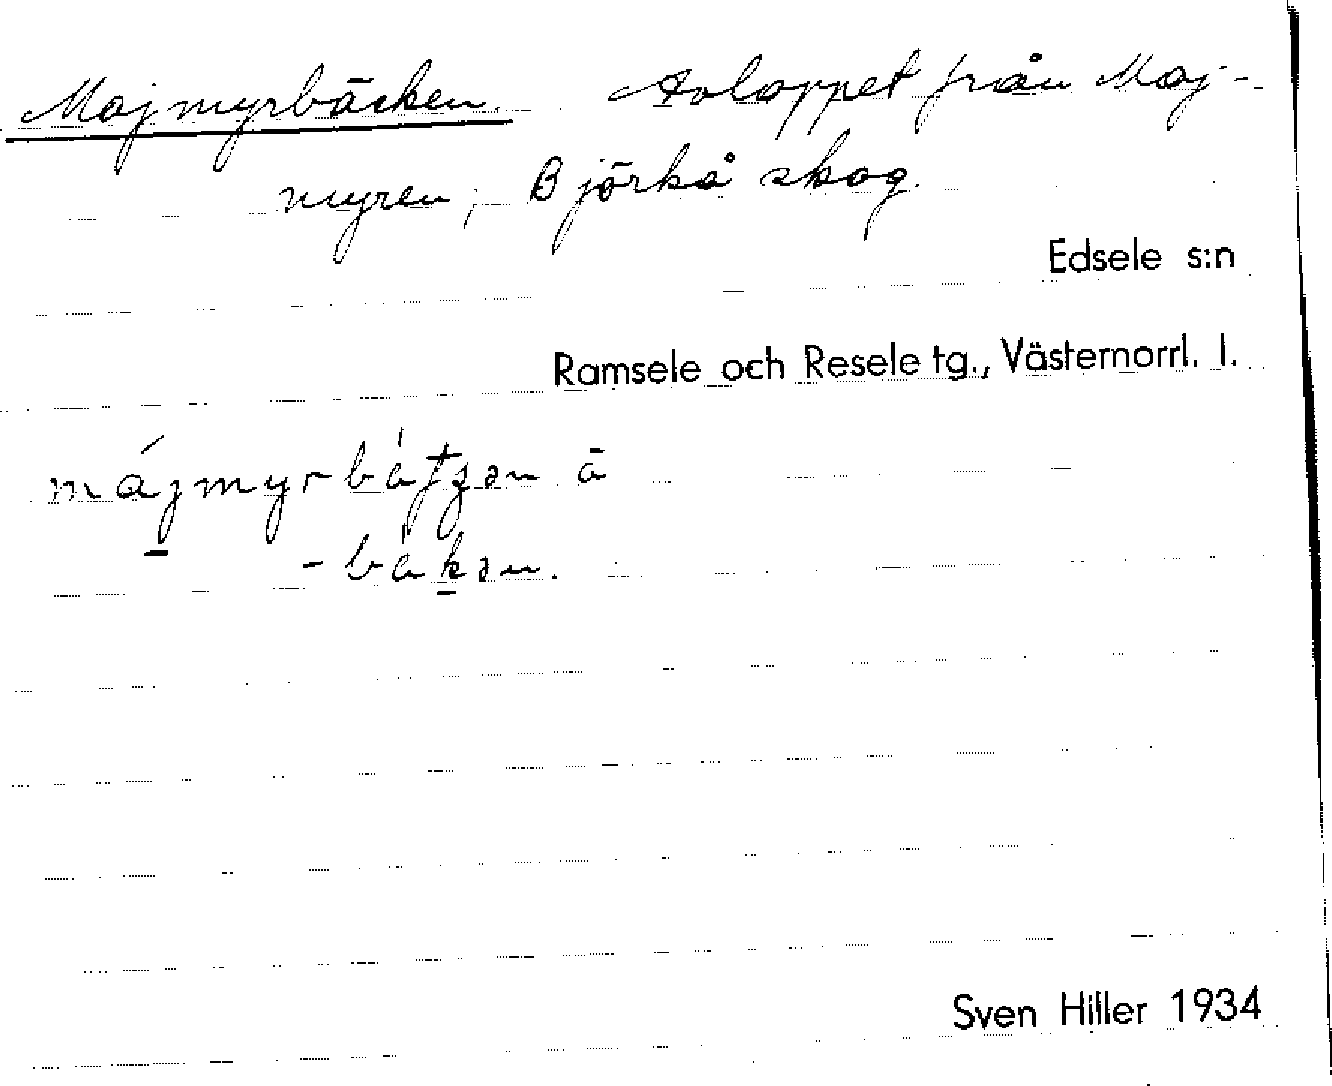 Majmyrbäcken. Avloppet från Maj-
myren, Björkå skog.
Edsele s:n
Ramsele och Resele tg., Västernorrl. l.
májmyrbátʒən ā
-bàkən.
Sven Hiller 1934